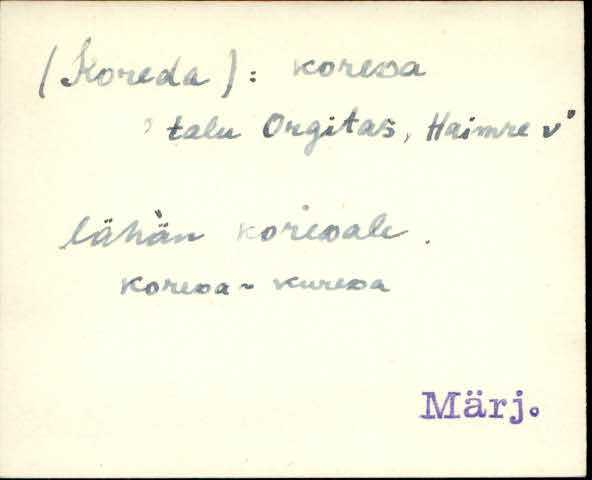 (Koreda): koreᴅa
" talu Orgitas, Haimre v"
lähän koreᴅale.
koreᴅa ~ kureᴅa
Märj.